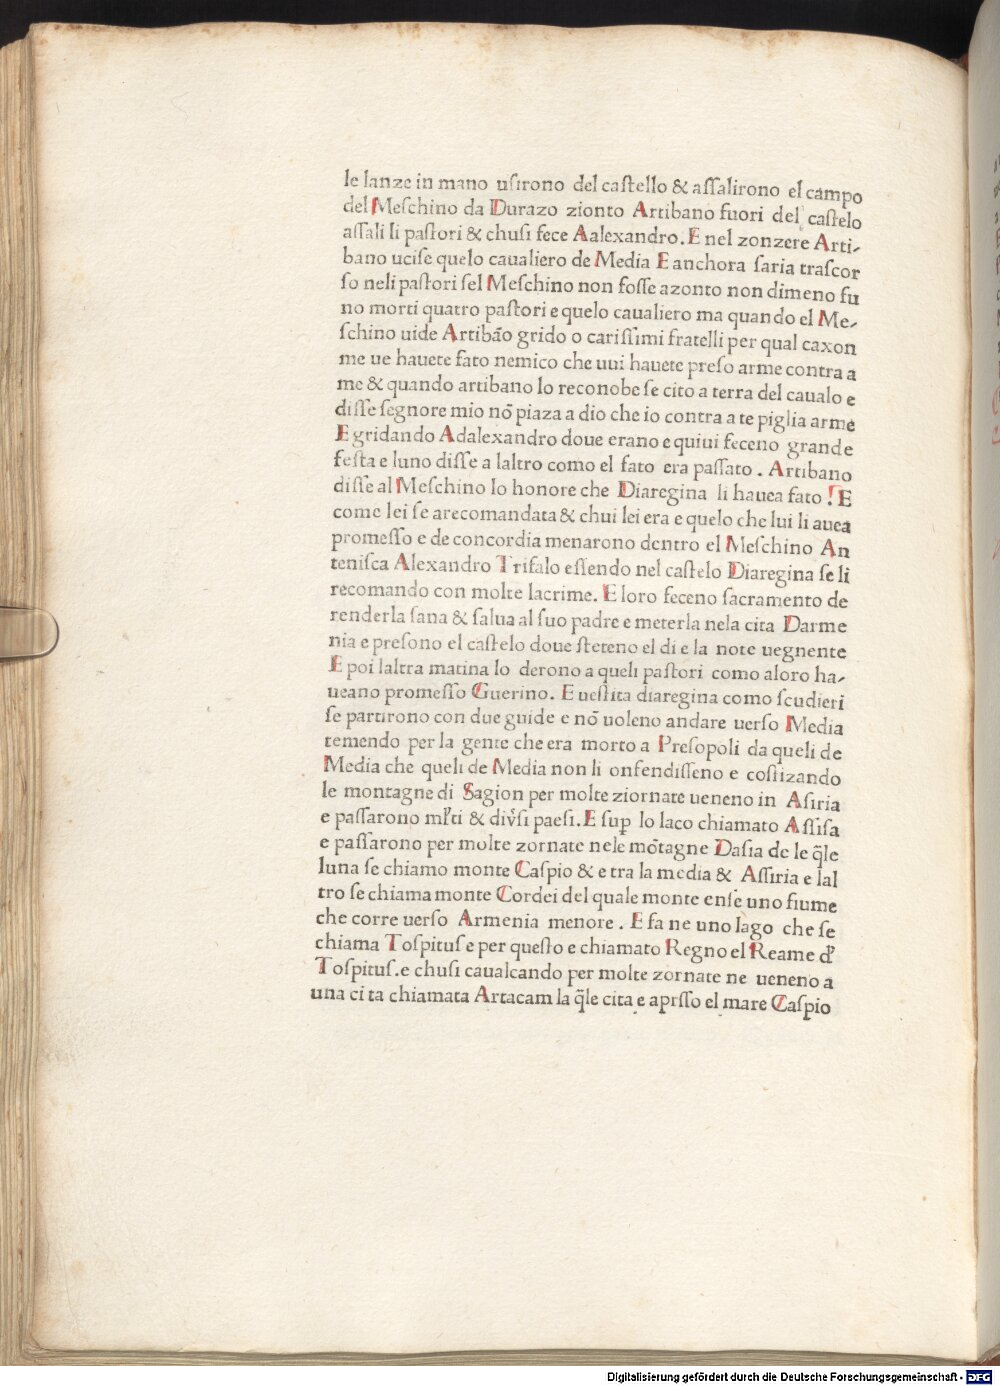 le lanze in mano uſirono del caſtello & aſſalirono el campo
del Meſchino da Durazo zionto Artibano fuori del caſtelo
aſſali li paſtori & chuſi fece Aalexandro. E nel zonzere Arti-
bano uciſe quelo caualiero de Media E anchora ſaria traſcor
ſo neli paſtori ſel Meſchino non foſſe azonto non dimeno fu
no morti quatro paſtori e quelo caualiero ma quando el Me-
ſchino uide Artibāo grido o cariſſimi fratelli per qual caxon
me ue hauete fato nemico che uui hauete preſo arme contra a
me & quando artibano lo reconobe ſe cito a terra del caualo e
diſſe ſegnore mio nō piaza a dio che io contra a te piglia arme
E gridando Adalexandro doue erano e quiui feceno grande
feſta e luno diſſe a laltro como el fato era paſſato . Artibano
diſſe al Meſchino lo honore che Diaregina li hauea fato . E
come lei ſe arecomandata & chui lei era e quelo che lui li auea
promeſſo e de concordia menarono dentro el Meſchino An
teniſca Alexandro Trifalo eſſendo nel caſtelo Diaregina ſe li
recomando con molte lacrime. E loro feceno ſacramento de
renderla ſana & ſalua al ſuo padre e meterla nela cita Darme
nia e preſono el caſtelo doue ſteteno el di e la note uegnente
E poi laltra matina lo derono a queli paſtori como aloro ha-
ueano promeſſo Guerino. E ueſtita diaregina como ſcudieri
ſe partirono con due guide e nō uoleno andare uerſo Media
temendo per la gente che era morto a Preſopoli da queli de
Media che queli de Media non li onfendiſſeno e coſtizando
le montagne di Sagion per molte ziornate ueneno in Aſiria
e paſſarono ml̄ti & div̄ſi paeſi. E ſup̲ lo laco chiamato Aſſiſa
e paſſarono per molte zornate nele mōtagne Daſia de le q̄le
luna ſe chiamo monte Caſpio & e tra la media & Aſſiria e lal
tro ſe chiama monte Cordei del quale monte enſe uno fiume
che corre uerſo Armenia menore . E fa ne uno lago che ſe
chiama Toſpituſ e per queſto e chiamato Regno el Reame d̄
Toſpituſ. e chuſi caualcando per molte zornate ne ueneno a
una ci ta chiamata Artacam la q̄le cita e aprſſo el mare Caſpio
Digitalisierung gefördert durch die Deutsche Forschungsgemeinschaft - DFG